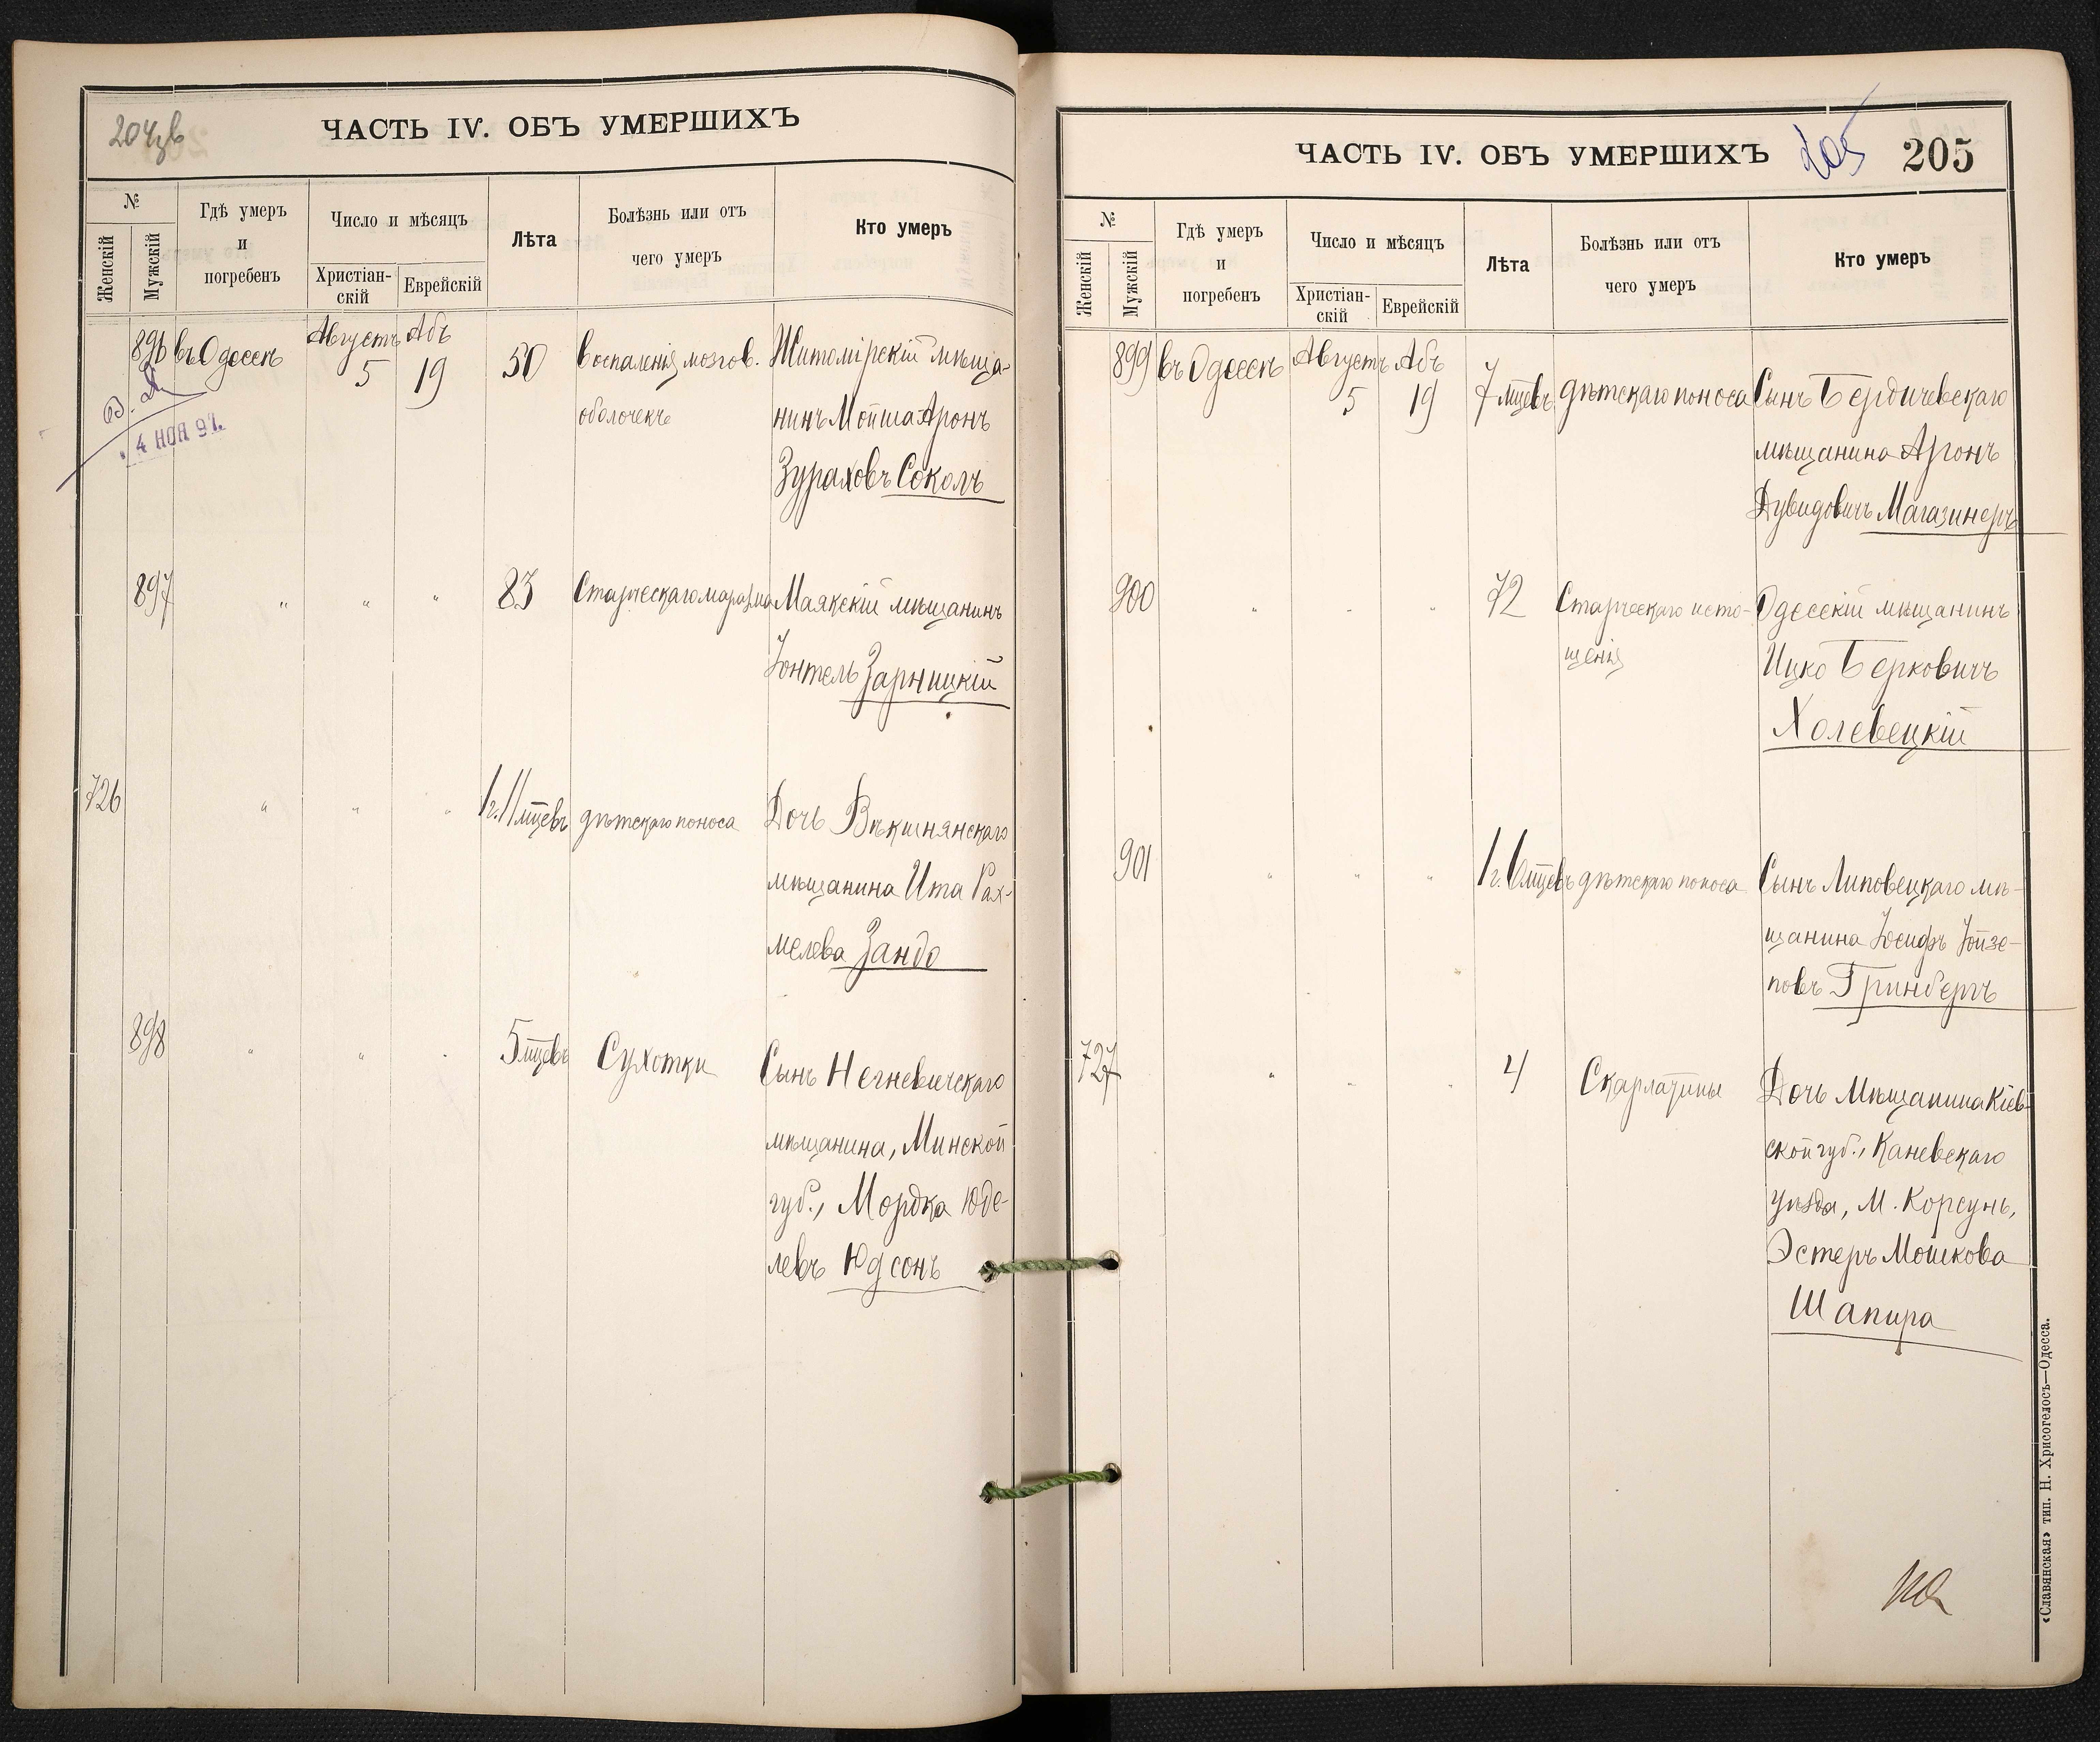 204 об
ЧАСТЬ IV. ОБЪ УМЕРШИХЪ
№
Женскій
Мужскій
Гдѣ умеръ
и
погребенъ
Число и мѣсяцъ
Христіан-
скій
Еврейскій
Лѣта
Болѣзнь или отъ
чего умеръ
Кто умеръ
896 въ Одессѣ Августъ 5 Абъ 19 50 воспаленія мозгов. Житомірскій мѣща-
оболочекъ нинъ Мойша Аронъ
4 НОЯ 97.
Зураховъ Соколъ
897 " " " 83 Старческаго маразма Маякскій мѣщанинъ
Іонтель Зарницкій
726 " " " 1 г. 11 мцевъ дѣтскаго поноса Дочь Векшнянскаго
мѣщанина Ита Рах-
мелева Зандо
898 " " " 5 мцевъ Сухотки Сынъ Негневичскаго
мѣщанина, Минской
губ., Мордка Юде-
левъ Юдсонъ
ЧАСТЬ IV. ОБЪ УМЕРШИХЪ
205
205
№
Женскій
Мужскій
Гдѣ умеръ
и
погребенъ
Число и мѣсяцъ
Христіан-
скій
Еврейскій
Лѣта
Болѣзнь или отъ
чего умеръ
Кто умеръ
899 въ Одессѣ Августъ 5 Абъ 19 7 мцевъ дѣтскаго поноса Сынъ Бердичевскаго
мѣщанина Аронъ
Дувидовичъ Магазинеръ
900 " " " 72 Старческаго исто- Одесскій мѣщанинъ
щенія Ицко Берковичъ
Холевецкій
901 " " " 1 г. 6 мцевъ дѣтскаго поноса Сынъ Липовецкаго мѣ-
щанина Іосифъ Іойзе-
повъ Гринбергъ
727 " " " 4 Скарлатины Дочь Мѣщанина Кіев-
ской губ., Каневскаго
уѣзда, М. Корсунь,
Эстеръ Мошкова
Шапира
«Славянская» тип. Н. Хрисогелосъ—Одесса.